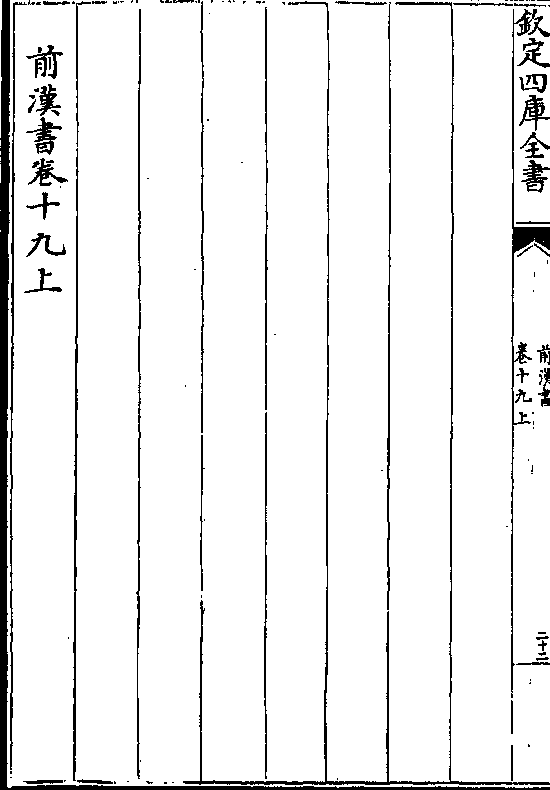 欽定四庫全書
前漢書
卷十九上
二十二
前漢書卷十九上